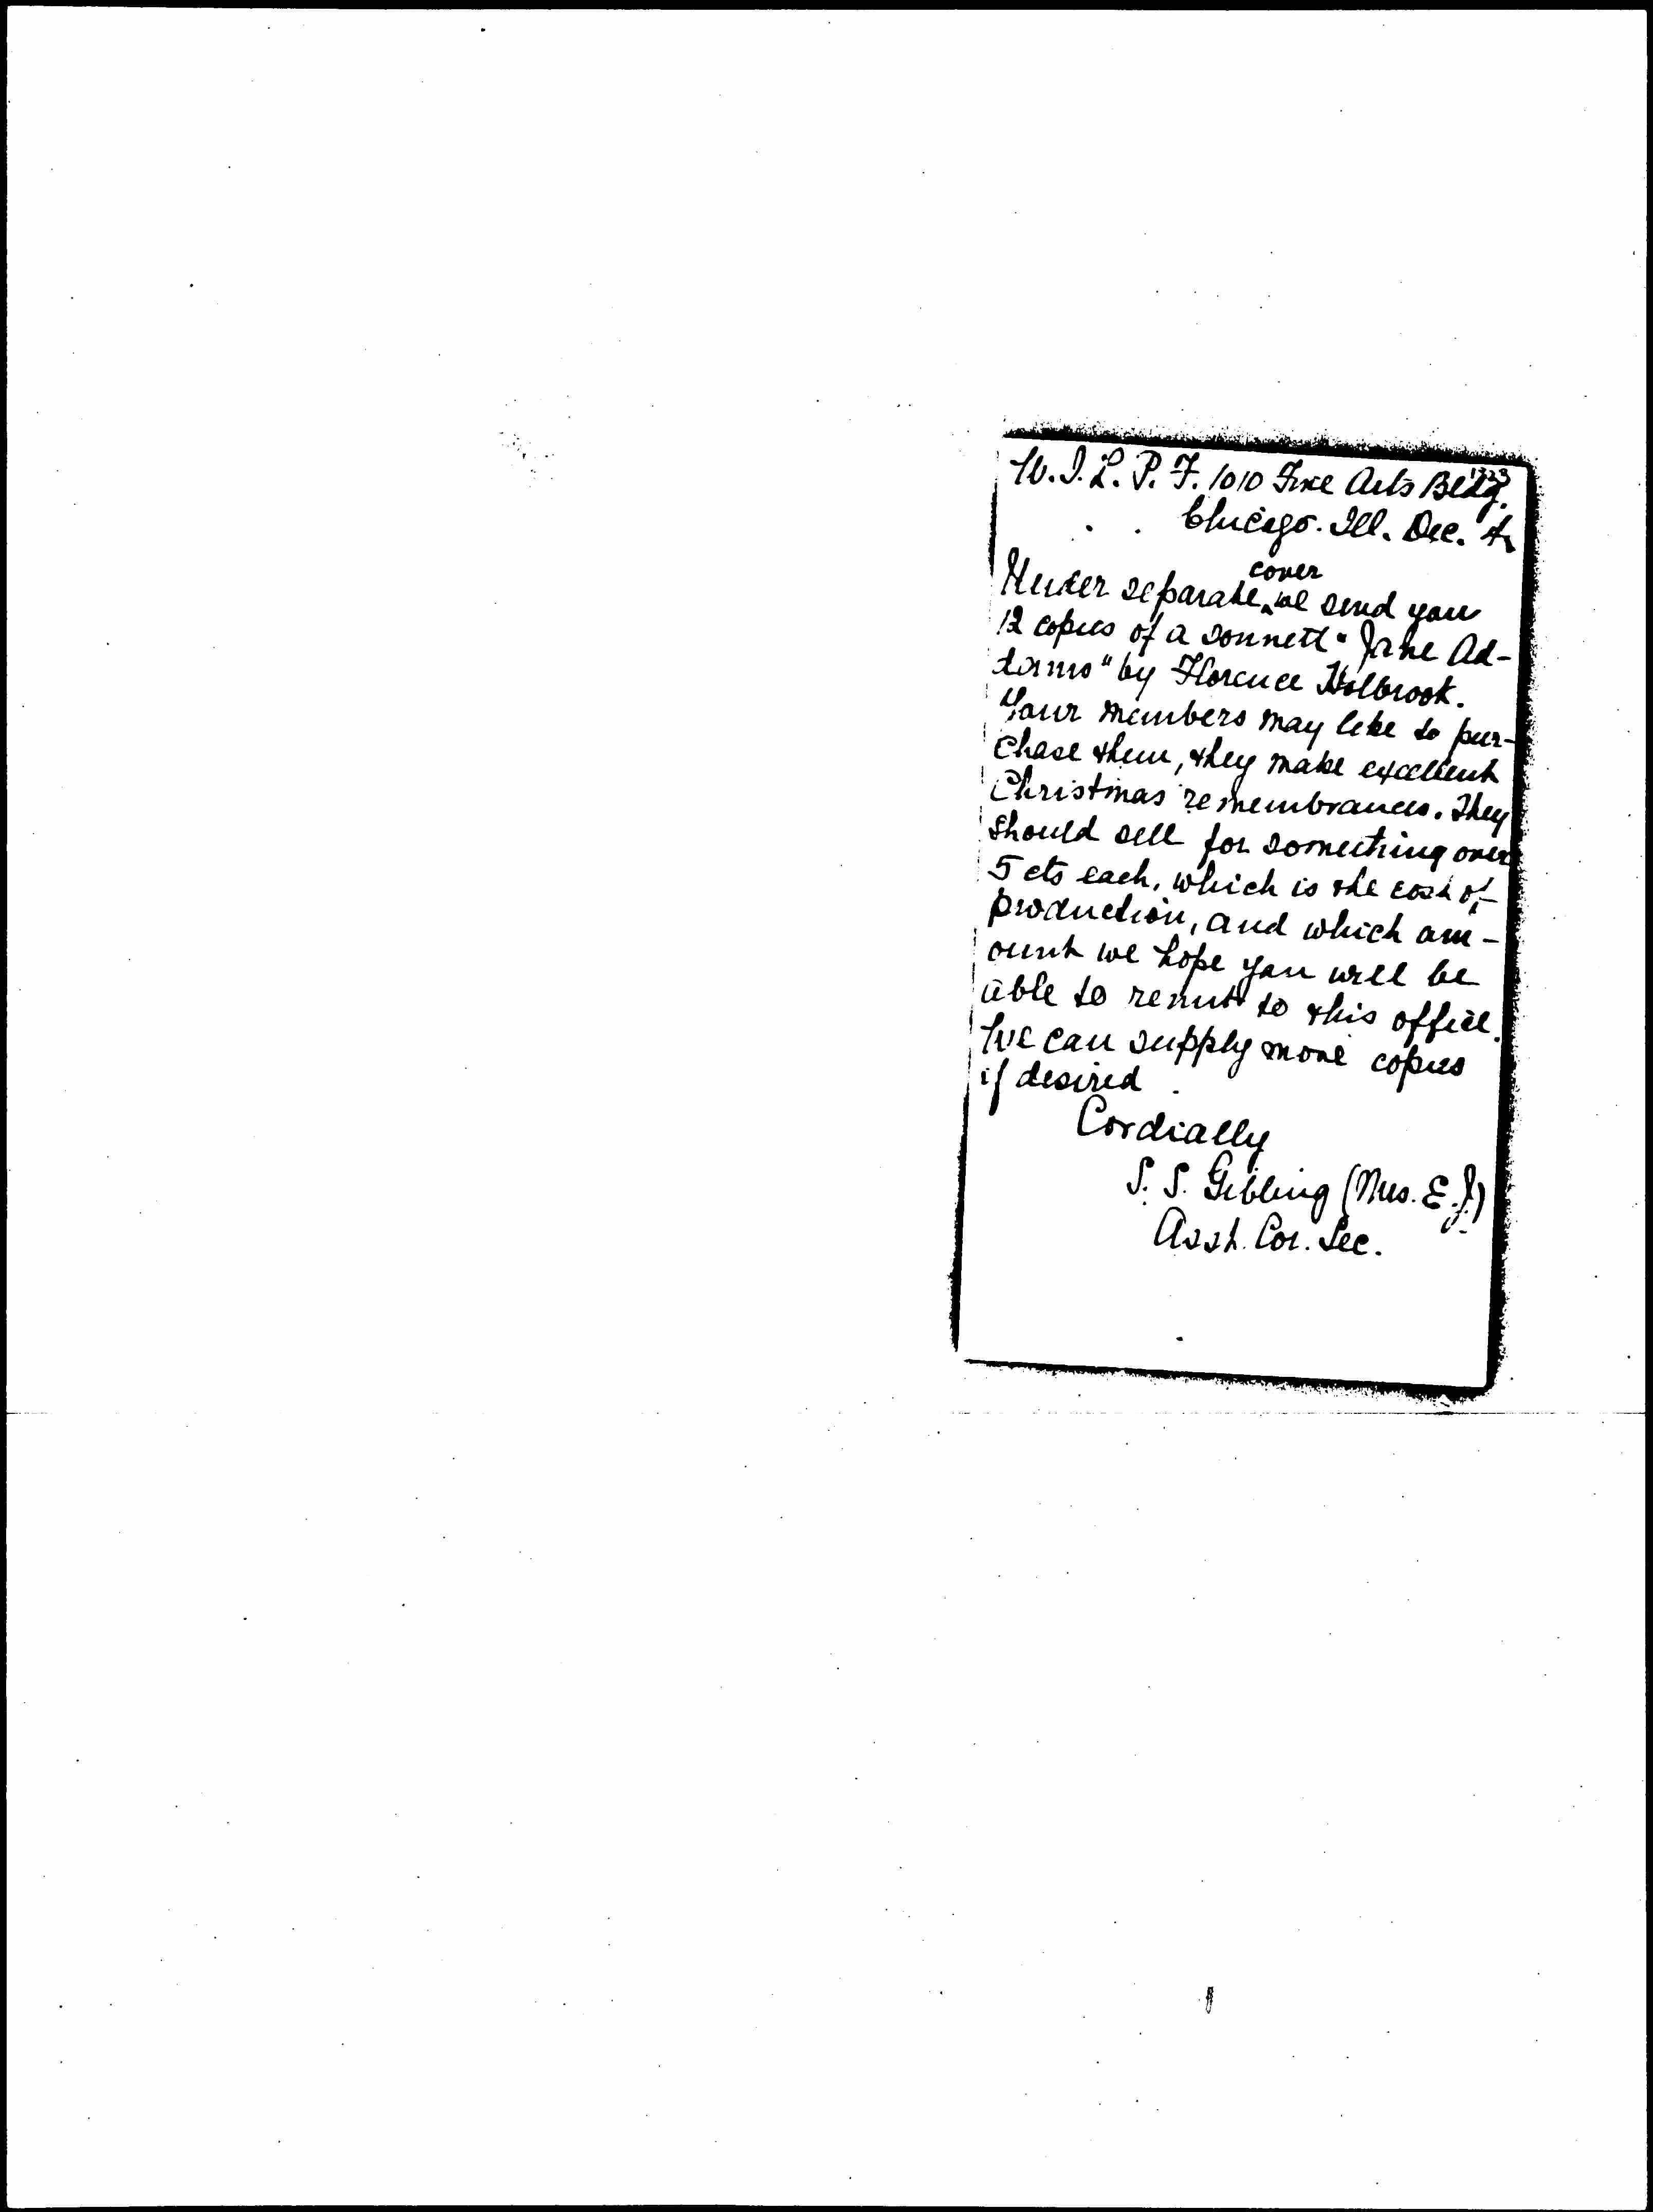 W.I.L.P.F. 1010 Fine Arts Bldg.
Chicago. Ill. Dec.
cover
Under separate ‸ we send you
12 copies of a sonnett "Jane Ad-
dams" by Florence Holbrook.
Your members may like to pur-
chase them, they make excellent
Christmas remembrances. They
should sell for something over
5 cts each, which is the cost of
production, and which am-
ount we hope you will be
able to remit to this office.
We can supply more copies
if desired.
Cordially
S. S. Gibling (Mrs. E. J.)
Asst. Cor. Sec.